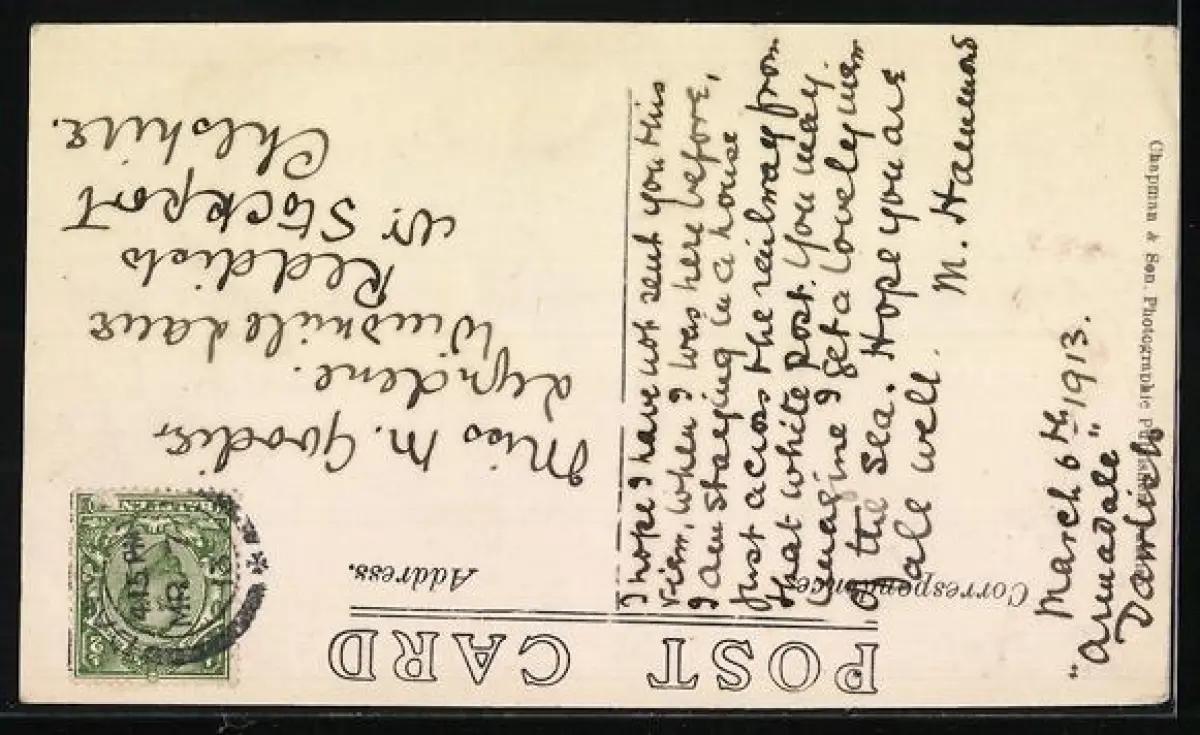 POST CARD
Correspondence.
Address.
March 6th 1913.
"Armadale"
Dawlish
I hope I have not sent you this
view, when I was here before,
I am staying in a house
just across the railway from
that white post. You may
imagine I get a lovely view
of the sea. Hope you are
all well.
M. Hammond
Miss M. Goodier,
Lyndene.
Windmill Lane
Reddish
Nr Stockport
Cheshire.
4.15 PM
MR 7
13
Chapman & Son, Photographic